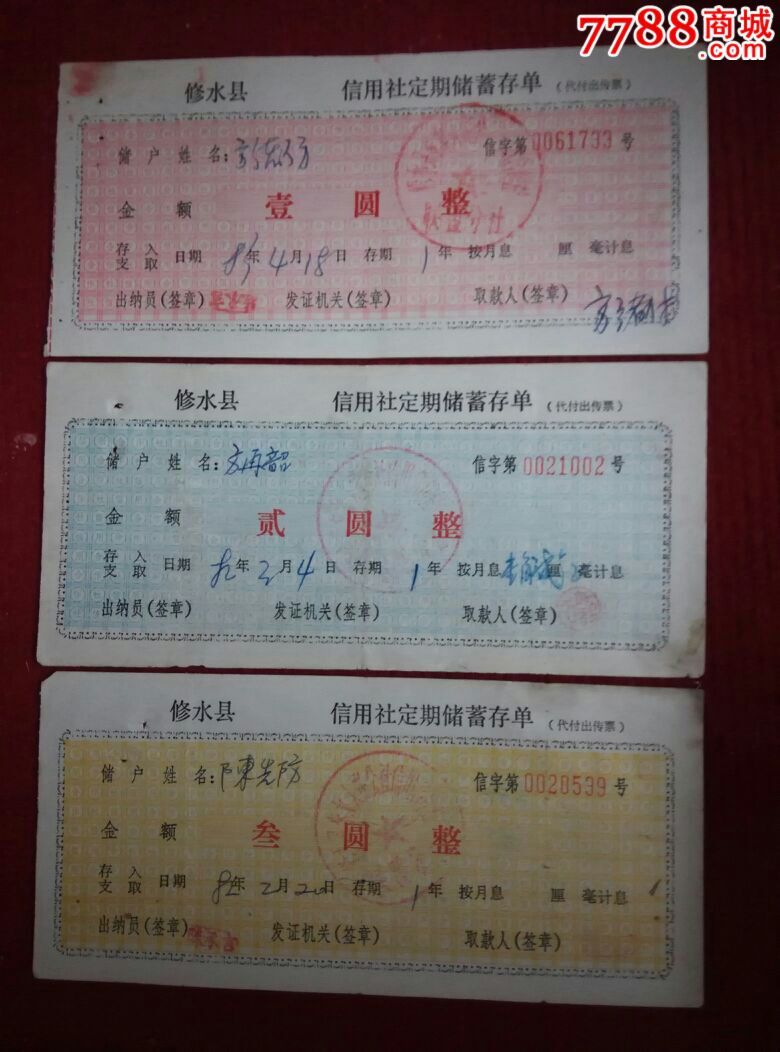 7788商城
.com
修水县 信用社定期储蓄存单 (代付出传票)
储户姓名: 信字第0061733号
金额 壹圆整
存入支取日期 年4月18日 存期1年 按月息 厘 毫计息
出纳员(签章) 发证机关(签章) 取款人(签章)
修水县 信用社定期储蓄存单 (代付出传票)
储户姓名: 信字第0021002号
金额 贰圆整
存入支取日期 年2月4日 存期1年 按月息 厘 毫计息
出纳员(签章) 发证机关(签章) 取款人(签章)
修水县 信用社定期储蓄存单 (代付出传票)
储户姓名:陳先防 信字第0020539号
金额 叁圆整
存入支取日期 年2月20日 存期1年 按月息 厘 毫计息
出纳员(签章) 发证机关(签章) 取款人(签章)